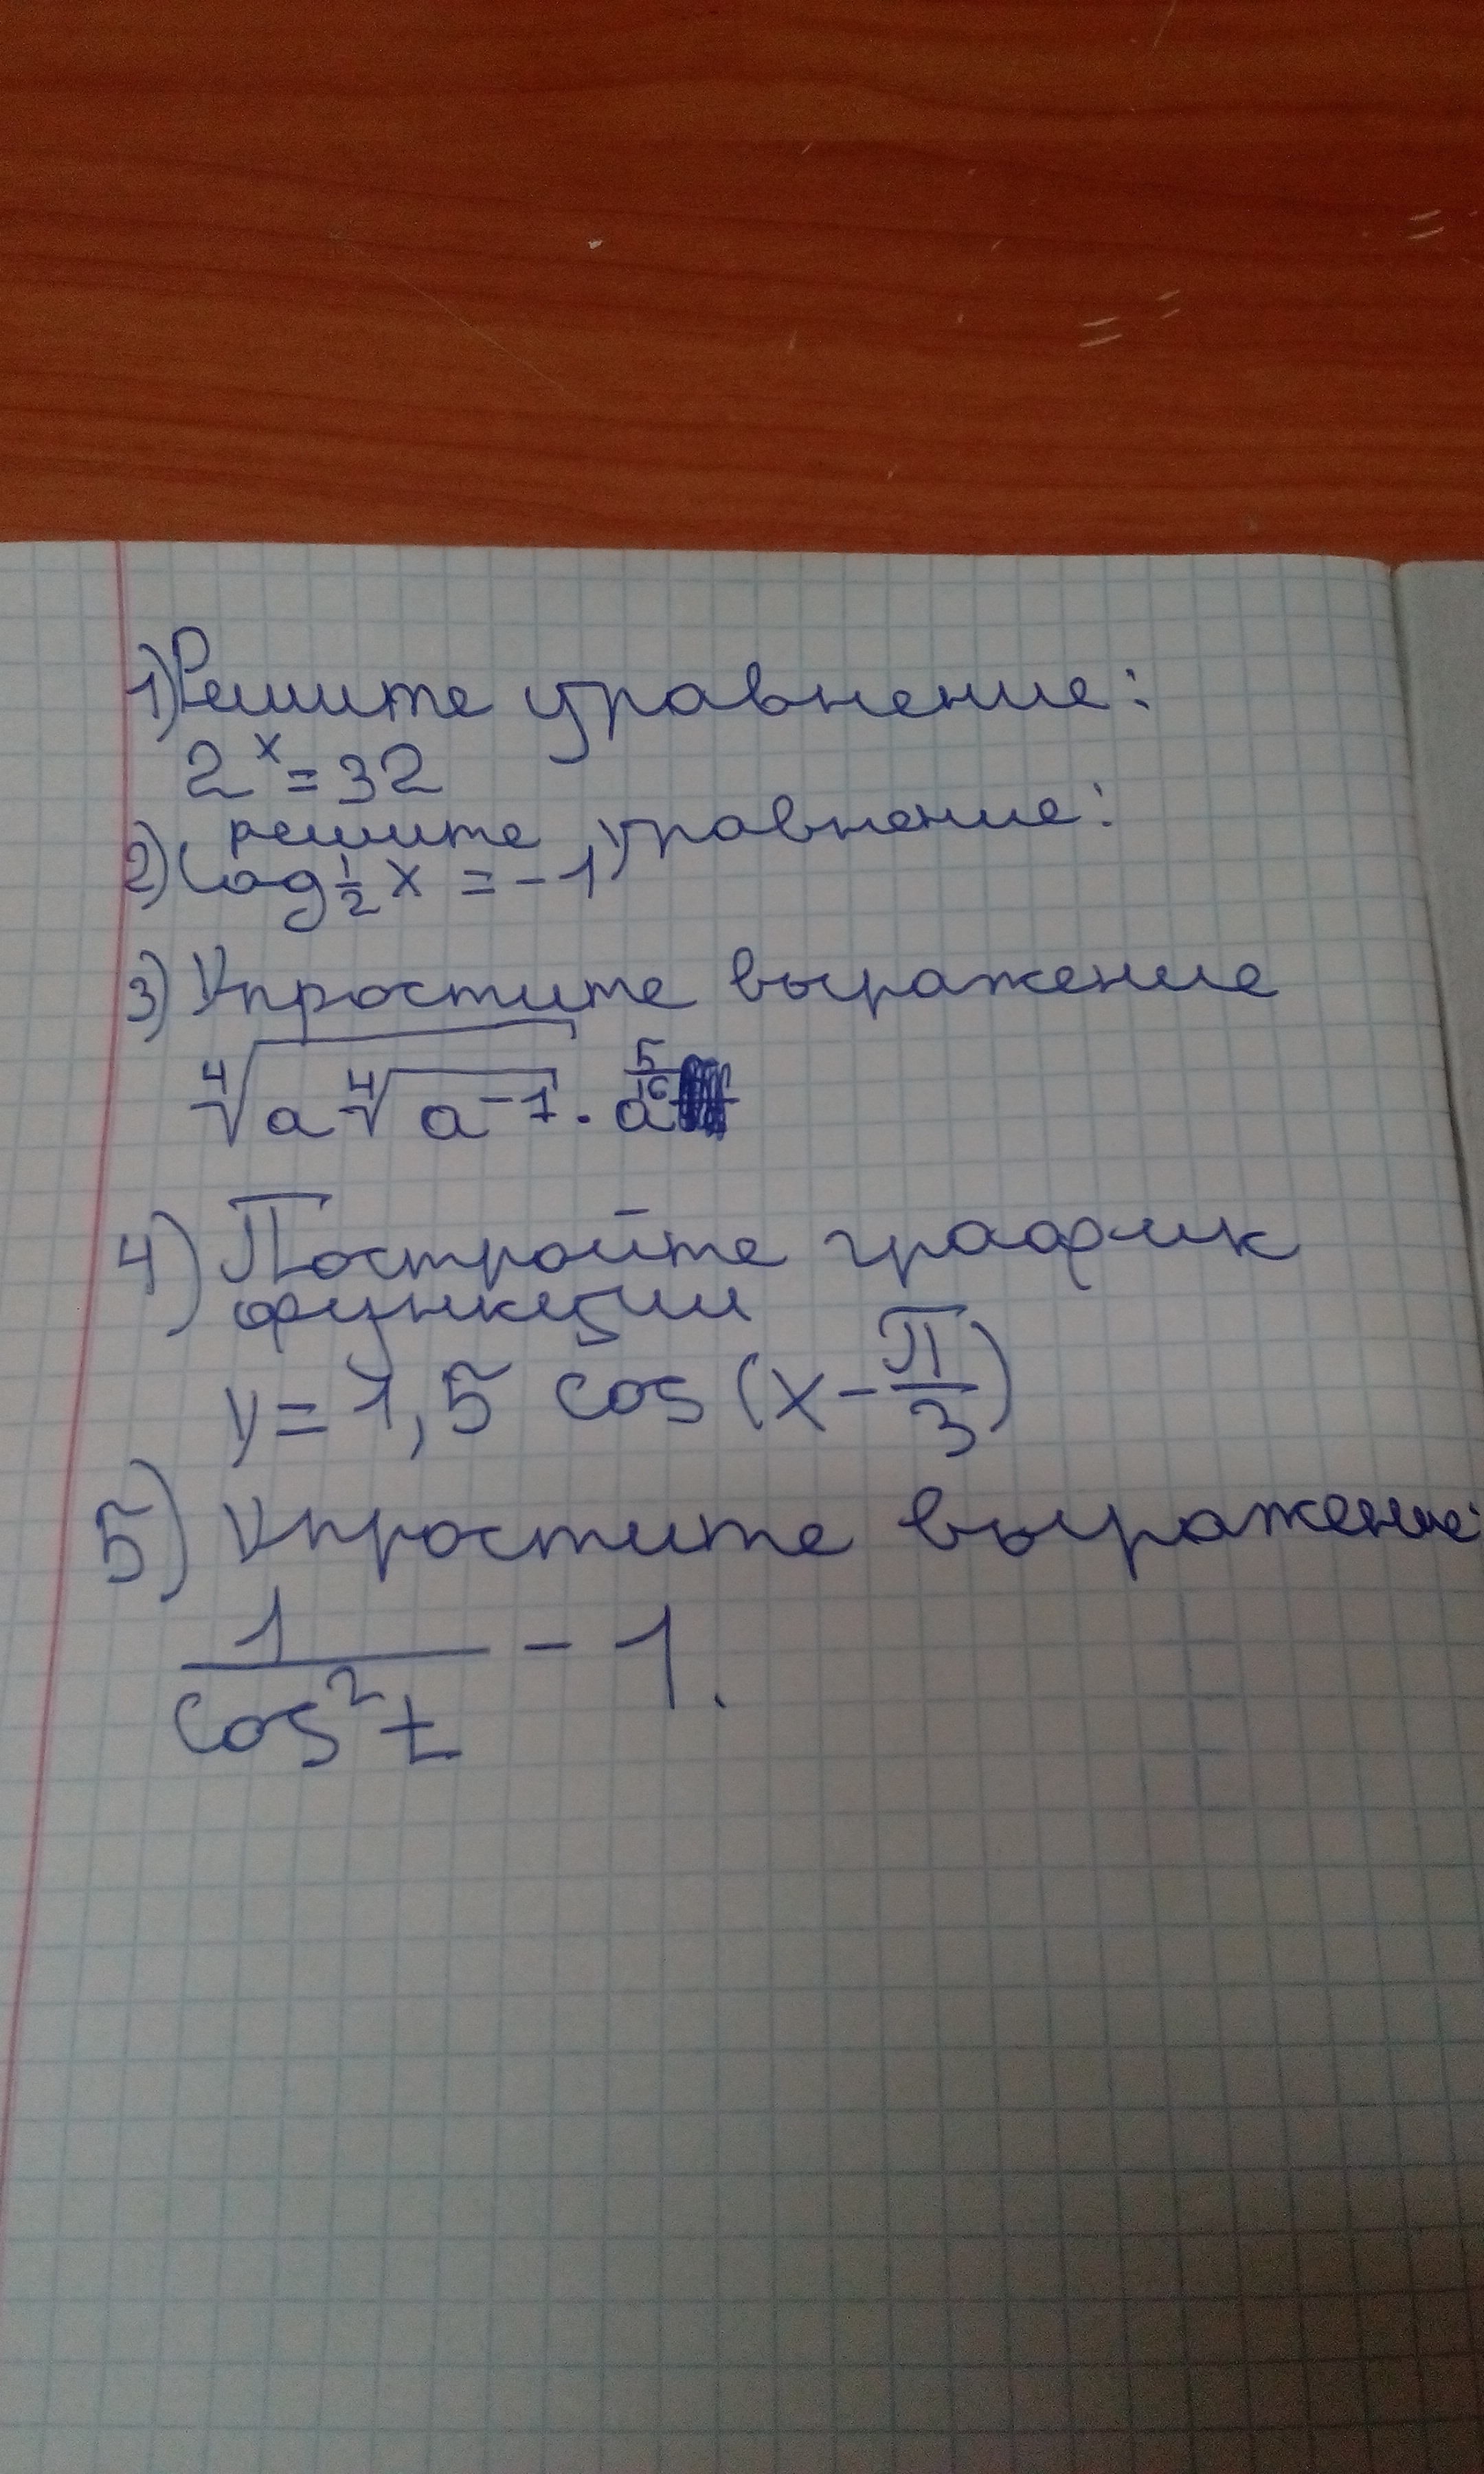 1) Решите уравнение:
2^x = 32
решите уравнение:
2) log 1/2 x = -1
3) Упростите выражение
⁴√(a ⁴√(a^-1)) · a^(5/16)
4) Постройте график
функции
y = 1,5 cos (x - π/3)
5) Упростите выражение:
1/cos²t - 1.